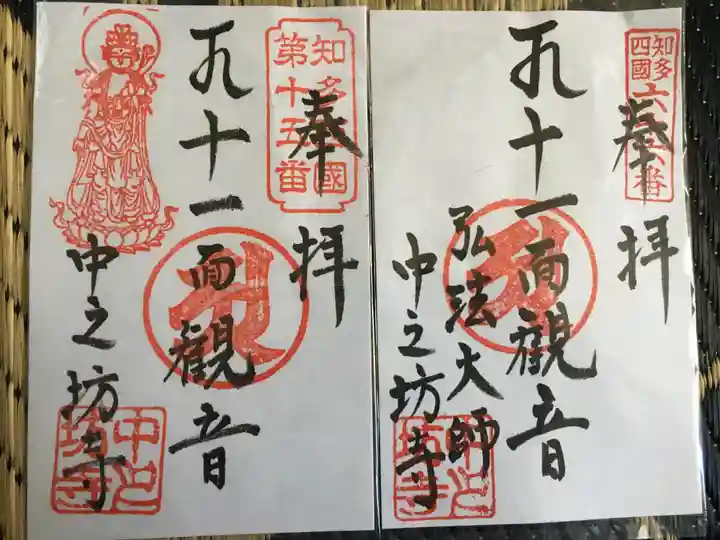 知多國
第十五番
奉拝
十一面觀音
中之坊寺
中之
坊寺
知多
四國
六十六番
奉拝
十一面觀音
弘法大師
中之坊寺
中之
坊寺